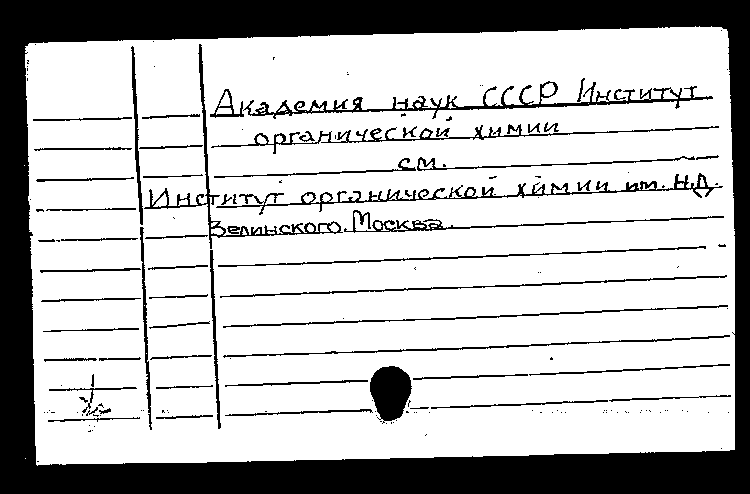 Академия наук СССР Институт
органической химии
см.
Институт органической химии им. Н.Д.
Зелинского. Москва.